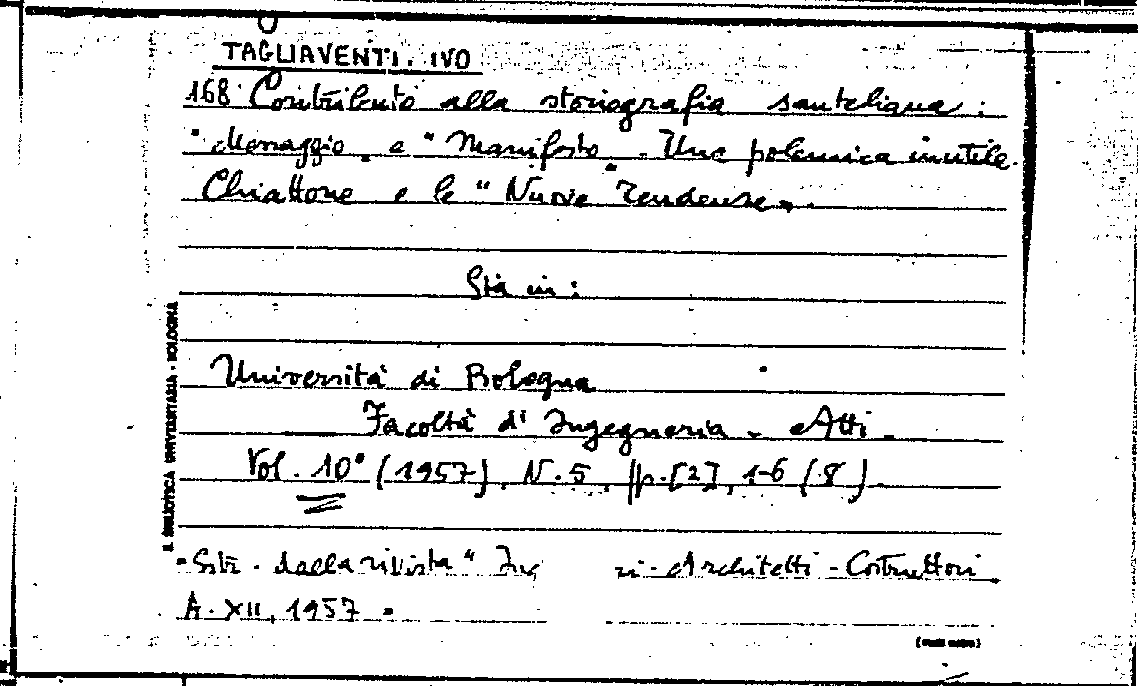 TAGLIAVENTI. IVO
168. Contributo alla storiografia santeliana:
"Messaggio" e "Manifesto". Una polemica inutile.
Chiattone e le "Nuove Tendenze".
Sta in:
Università di Bologna
Facoltà di Ingegneria - Atti.
Vol. 10° (1957), N. 5, pp. [2], 1-6 (8).
"Estr. dalla rivista "Ing ri-Architetti-Costruttori
A. XII, 1957"
R. BIBLIOTECA UNIVERSITARIA - BOLOGNA